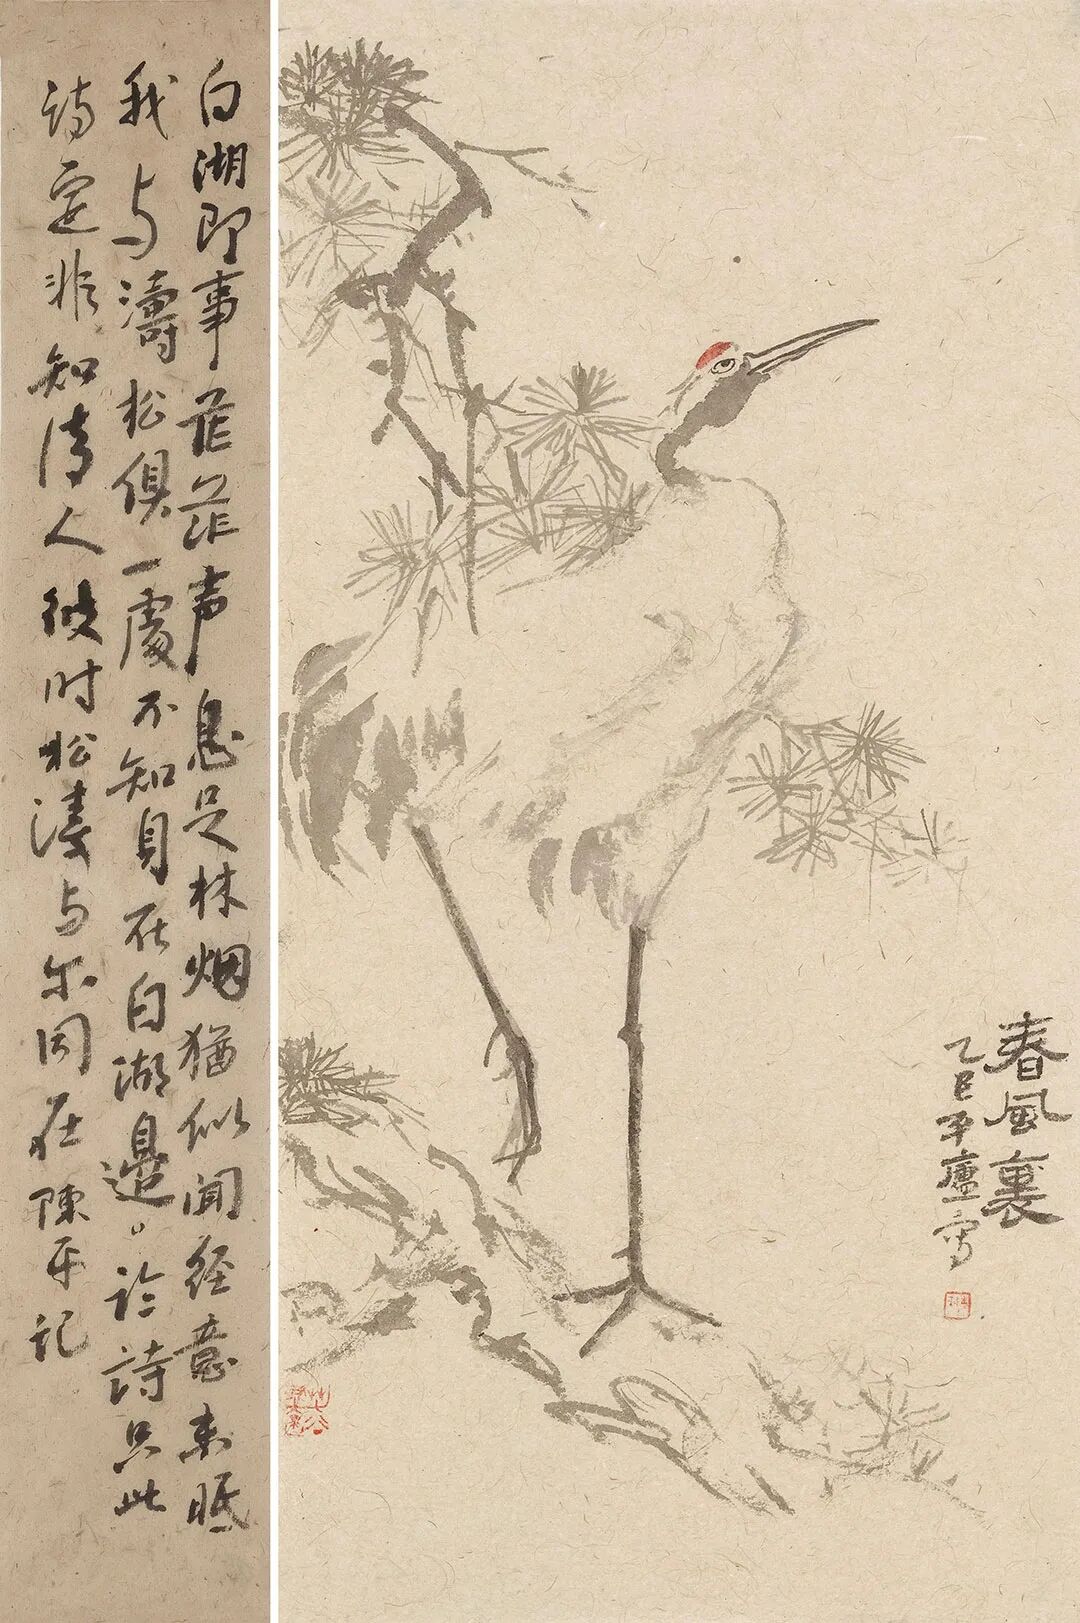 白湖即事茫茫声息足林烟犹似闻经意未眠
我与濤松俱一處不知身在白湖邊。论詩只此
诗還非知诗人彼时松濤与尔同在陳平记
春風裏
乙巳平廬写